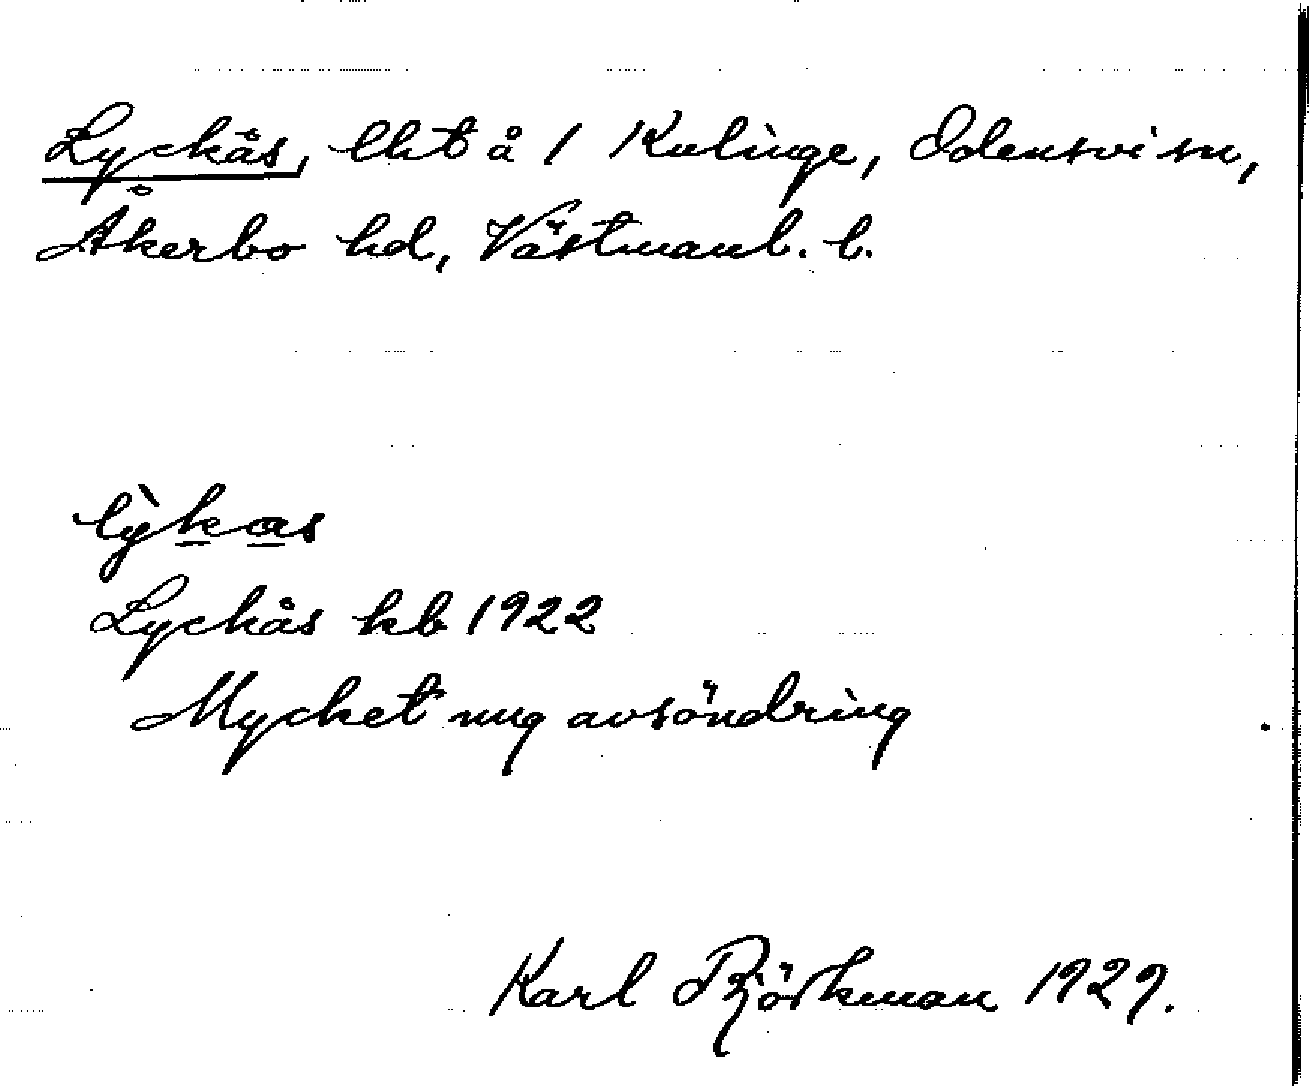 Lyckås, lht å 1 Kulinge, Odensvi sn,
Åkerbo hd, Västmanl. l.
lỳkas
Lyckås kb 1922
Mycket ung avsöndring
Karl Björkman 1929.